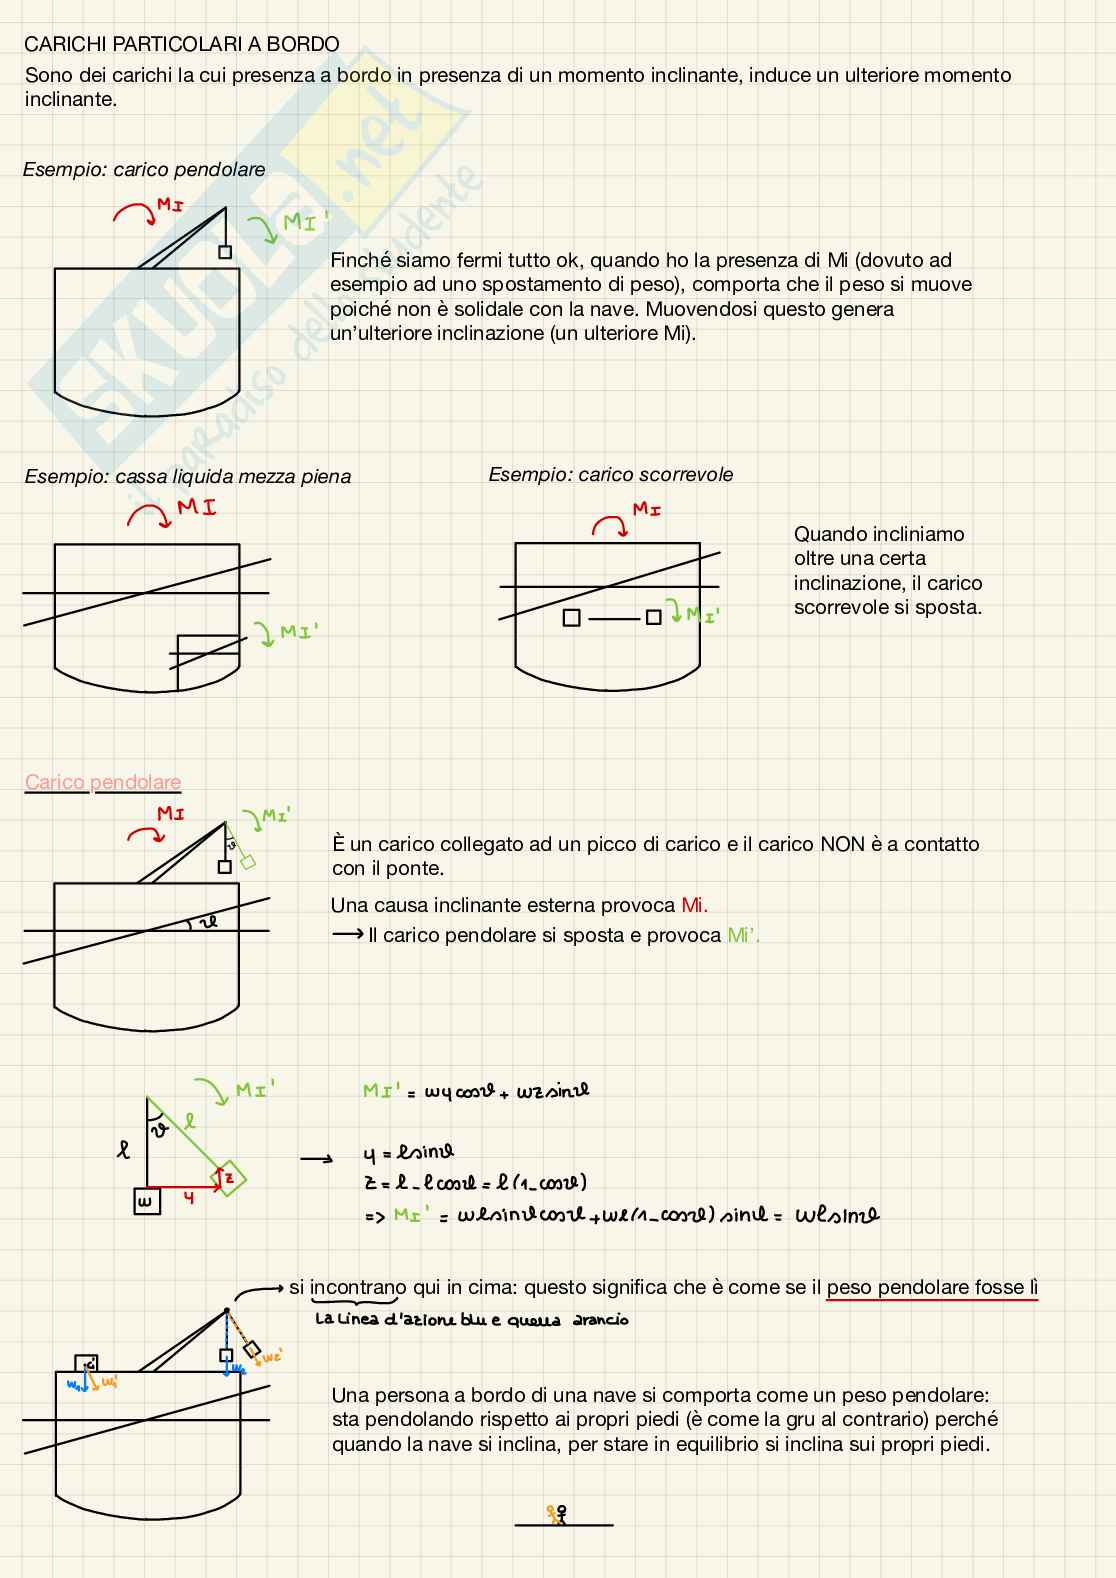 CARICHI PARTICOLARI A BORDO
Sono dei carichi la cui presenza a bordo in presenza di un momento inclinante, induce un ulteriore momento
inclinante.
Esempio: carico pendolare
MI
MI'
Finché siamo fermi tutto ok, quando ho la presenza di Mi (dovuto ad
esempio ad uno spostamento di peso), comporta che il peso si muove
poiché non è solidale con la nave. Muovendosi questo genera
un'ulteriore inclinazione (un ulteriore Mi).
SKUOLA.net
il paradiso dello studente
Esempio: cassa liquida mezza piena
MI
MI'
Esempio: carico scorrevole
MI
MI'
Quando incliniamo
oltre una certa
inclinazione, il carico
scorrevole si sposta.
Carico pendolare
MI
MI'
ϑ
ϑ
È un carico collegato ad un picco di carico e il carico NON è a contatto
con il ponte.
Una causa inclinante esterna provoca Mi.
⟶ Il carico pendolare si sposta e provoca Mi'.
MI'
l
ϑ
l
z
y
w
MI' = wy cosϑ + wz sinϑ
→ y = l sinϑ
z = l - l cosϑ = l (1-cosϑ)
=> MI' = wl sinϑ cosϑ + wl (1-cosϑ) sinϑ = wl sinϑ
→ si incontrano qui in cima: questo significa che è come se il peso pendolare fosse lì
La linea d'azione blu e quella arancio
G
w1
w1'
w2
w2'
Una persona a bordo di una nave si comporta come un peso pendolare:
sta pendolando rispetto ai propri piedi (è come la gru al contrario) perché
quando la nave si inclina, per stare in equilibrio si inclina sui propri piedi.